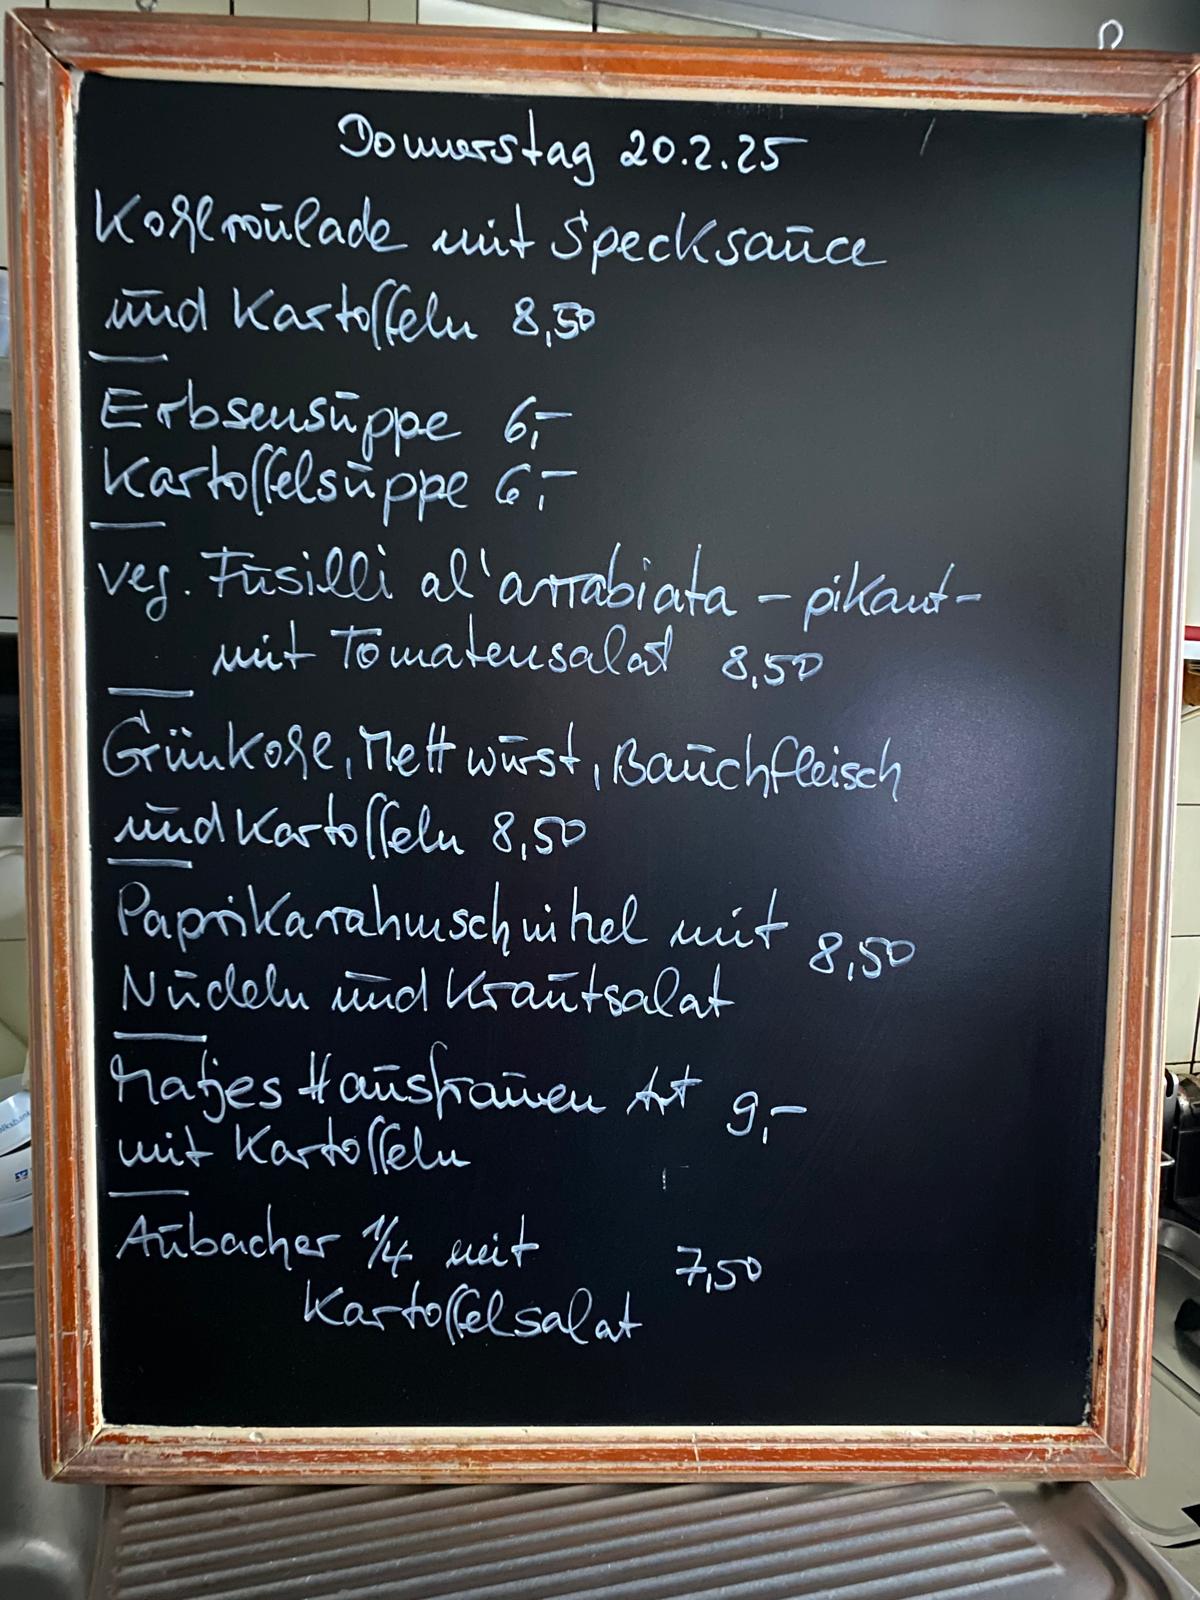 Donnerstag 20.2.25
Kohlroulade mit Specksauce
und Kartoffeln 8,50
Erbsensuppe 6,-
Kartoffelsuppe 6,-
veg. Fusilli al'arrabiata - pikant-
mit Tomatensalat 8,50
Grünkohl, Mettwurst, Bauchfleisch
und Kartoffeln 8,50
Paprikarahmschnitzel mit 8,50
Nudeln und Krautsalat
Matjes Hausfrauen Art 9,-
mit Kartoffeln
Aubacher 1/4 mit 7,50
Kartoffelsalat